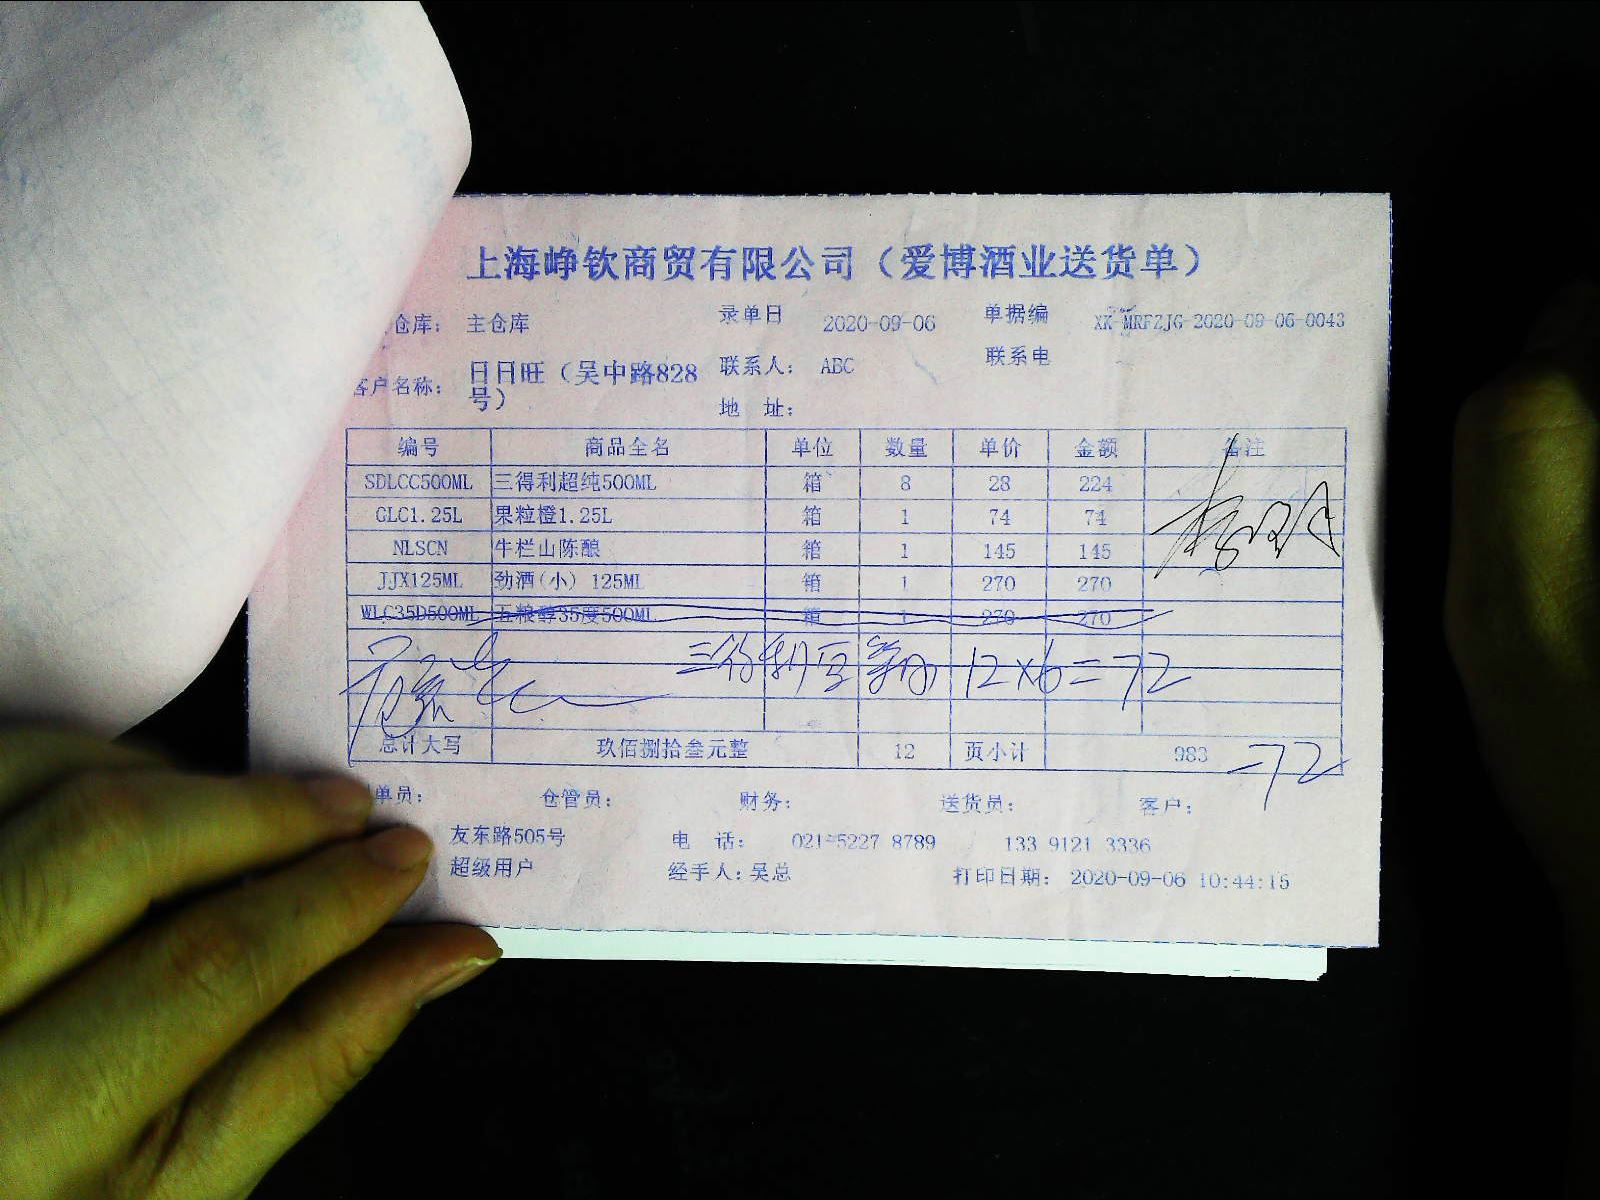 上海峥钦商贸有限公司（爱博酒业送货单）
仓库： 主仓库 录单日 2020-09-06 单据编 XK-MRFZJG-2020-09-06-0043
客户名称： 日日旺（吴中路828号） 联系人： ABC 联系电
地 址：
编号 商品全名 单位 数量 单价 金额 备注
SDLCC500ML 三得利超纯500ML 箱 8 28 224
GLC1.25L 果粒橙1.25L 箱 1 74 74
NLSCN 牛栏山陈酿 箱 1 145 145
JJX125ML 劲酒(小) 125ML 箱 1 270 270
WLC35D500ML 五粮醇35度500ML 箱 1 270 270
三得利 12×6=72
总计大写 玖佰捌拾叁元整 12 页小计 983 -72
单员： 仓管员： 财务： 送货员： 客户：
友东路505号 电 话： 021-5227 8789 133 9121 3336
超级用户 经手人：吴总 打印日期： 2020-09-06 10:44:15